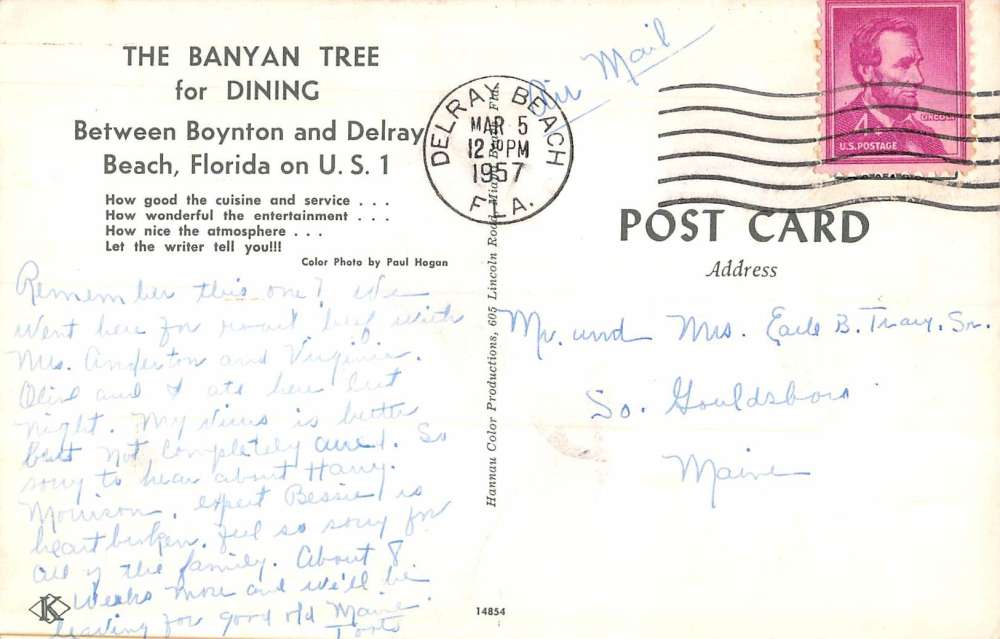 THE BANYAN TREE
for DINING
Between Boynton and Delray
Beach, Florida on U. S. 1
How good the cuisine and service . . .
How wonderful the entertainment . . .
How nice the atmosphere . . .
Let the writer tell you!!!
Color Photo by Paul Hogan
Remember this one? We
went here for roast beef with
Mrs. Anderton and Virginia.
Olive and I ate here last
night. My virus is better
but not completely cured. So
sorry to hear about Harry
Morrison, expect Bessie is
heartbroken. Feel so sorry for
all of the family. About 8
weeks more and we'll be
leaving for good old Maine.
Toots
K
14854
Hannau Color Productions, 605 Lincoln Road, Miami Beach, Fla.
Air Mail
DELRAY BEACH
MAR 5
12 PM
1957
FLA.
LINCOLN
U.S. POSTAGE
POST CARD
Address
Mr. and Mrs. Earle B. Tracy, Sr.
So. Gouldsboro
Maine